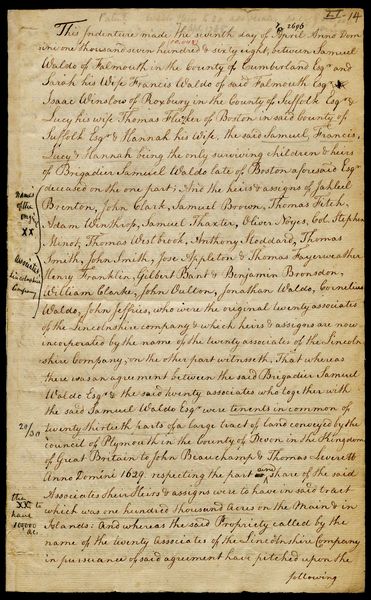 II-14
2696
This Indenture made the seventh day of April Anno Dom
ini one thousand seven hundred & sixty eight, between Samuel
Waldo of Falmouth in the County of Cumberland Esqr and
Sarah his Wife Francis Waldo of said Falmouth Esqr &
Isaac Winslow of Roxbury in the County of Suffolk Esqr &
Lucy his wife Thomas Flucker of Boston in said County of
Suffolk Esqr & Hannah his wife, the said Samuel, Francis,
Lucy & Hannah being the only surviving children & heirs
of Brigadier Samuel Waldo late of Boston aforesaid Esqr
deceased on the one part; And the heirs & assigns of Jahleel
Brenton, John Clark, Samuel Brown, Thomas Fitch,
Adam Winthrop, Samuel Thaxter, Oliver Noyes, Col. Stephen
Minot, Thomas Westbrook, Anthony Stoddard, Thomas
Smith, John Smith, Jose Appleton & Thomas Fayerweather
Henry Franklin, Gilbert Bant & Benjamin Bronsdon,
William Clarke, John Oulton, Jonathan Waldo, Cornelius
Waldo, John Jeffries, who were the original twenty associates
of the Lincolnshire company & which heirs & assigns are now
incorporated by the name of the twenty associates of the Lincoln-
shire Company, on the other part witnesseth, That whereas
there was an agreement between the said Brigadier Samuel
Waldo Esqr & the said twenty associates who together with
the said Samuel Waldo Esqr were tenents in common of
twenty thirtieth parts of a large tract of land conveyed by the
council of Plymouth in the County of Devon in the Kingdom
of Great Britain to John Beauchamp & Thomas Leverett
Anno Domini 1629. respecting the part and share of the said
Associates their Heirs & assigns were to have in said tract
which was one hundred thousand Acres on the Main & in
Islands: And whereas the said Propriety called by the
name of the twenty Associates of the Lincolnshire Company
in pursuance of said agreement have pitched upon the
following
names
of the
XX
Associates
Lincolnshire
Company
20/30
the
XX to
have
100000
ac.